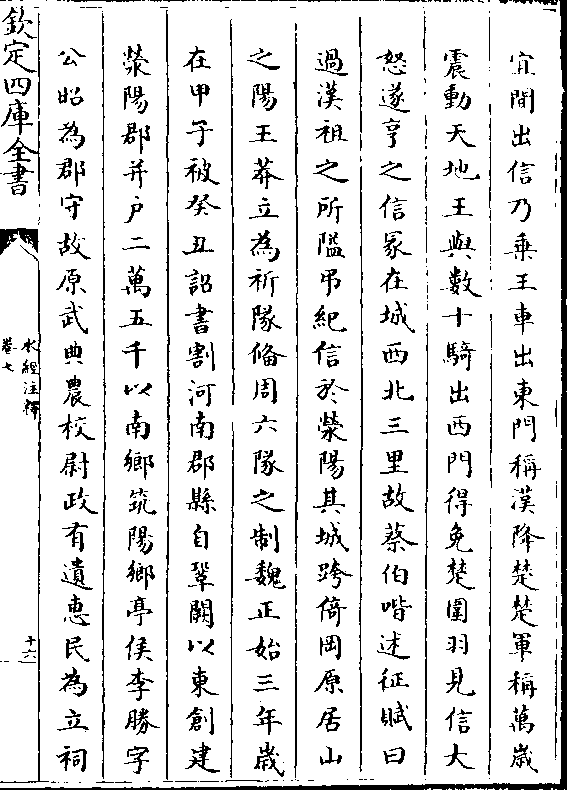 宜間出信乃乗王車出東門稱漢降楚楚軍稱萬歲
震動天地王與數十騎出西門得免楚圍羽見信大
怒遂亨之信冢在城西北三里故蔡伯喈述征賦曰
過漢祖之所隘弔紀信於滎陽其城跨倚岡原居山
之陽王莽立為祈隊俻周六隊之制魏正始三年歲
在甲子被癸丑詔書割河南郡縣自鞏闕以東創建
滎陽郡并户二萬五千以南鄉筑陽鄉亭侯李勝字
公昭為郡守故原武典農校尉政有遺惠民為立祠
欽定四庫全書
水經注釋
卷七
十六